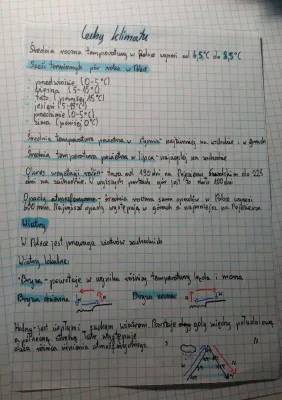 Cechy klimatu
Średnia roczna temperatura w Polsce wynosi od 6,5°C do 8,5°C
Sześć termicznych pór roku w Polsce
przedwiośnie (0-5°C)
wiosna (5-15°C)
lato (powyżej 15°C)
jesień (5-15°C)
przedzimie (0-5°C)
zima (poniżej 0°C)
Średnia temperatura powietrza w styczniu najzimniej na wschodzie i w górach
Średnia temperatura powietrza w lipcu - najcieplej na zachodzie
Okres wegetacji roślin: trwa od 190 dni na Pojezierzu Suwalskim do 225
dni na zachodzie. W wyższych partiach gór jest to około 100 dni
Opady atmosferyczne - średnia roczna suma opadów w Polsce wynosi
600 mm. Najwyższe opady występują w górach a najmniejsze na Pojezierzu
Wiatry
W Polsce jest przewaga wiatrów zachodnich
Wiatry lokalne:
Bryza - powstaje w wyniku różnicy temperatury lądu i morza
Bryza dzienna Bryza nocna
Halny - jest ciepłym i suchym wiatrem. Powstaje gdy między południową
a północną stroną Tatr występuje
duża różnica ciśnienia atmosferycznego.
N